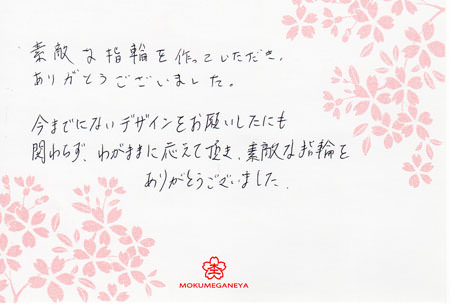 素敵な指輪を作っていただき、
ありがとうございました。
今までにないデザインをお願いしたにも
関わらず、わがままに応えて頂き、素敵な指輪を
ありがとうございました。
MOKUMEGANEYA